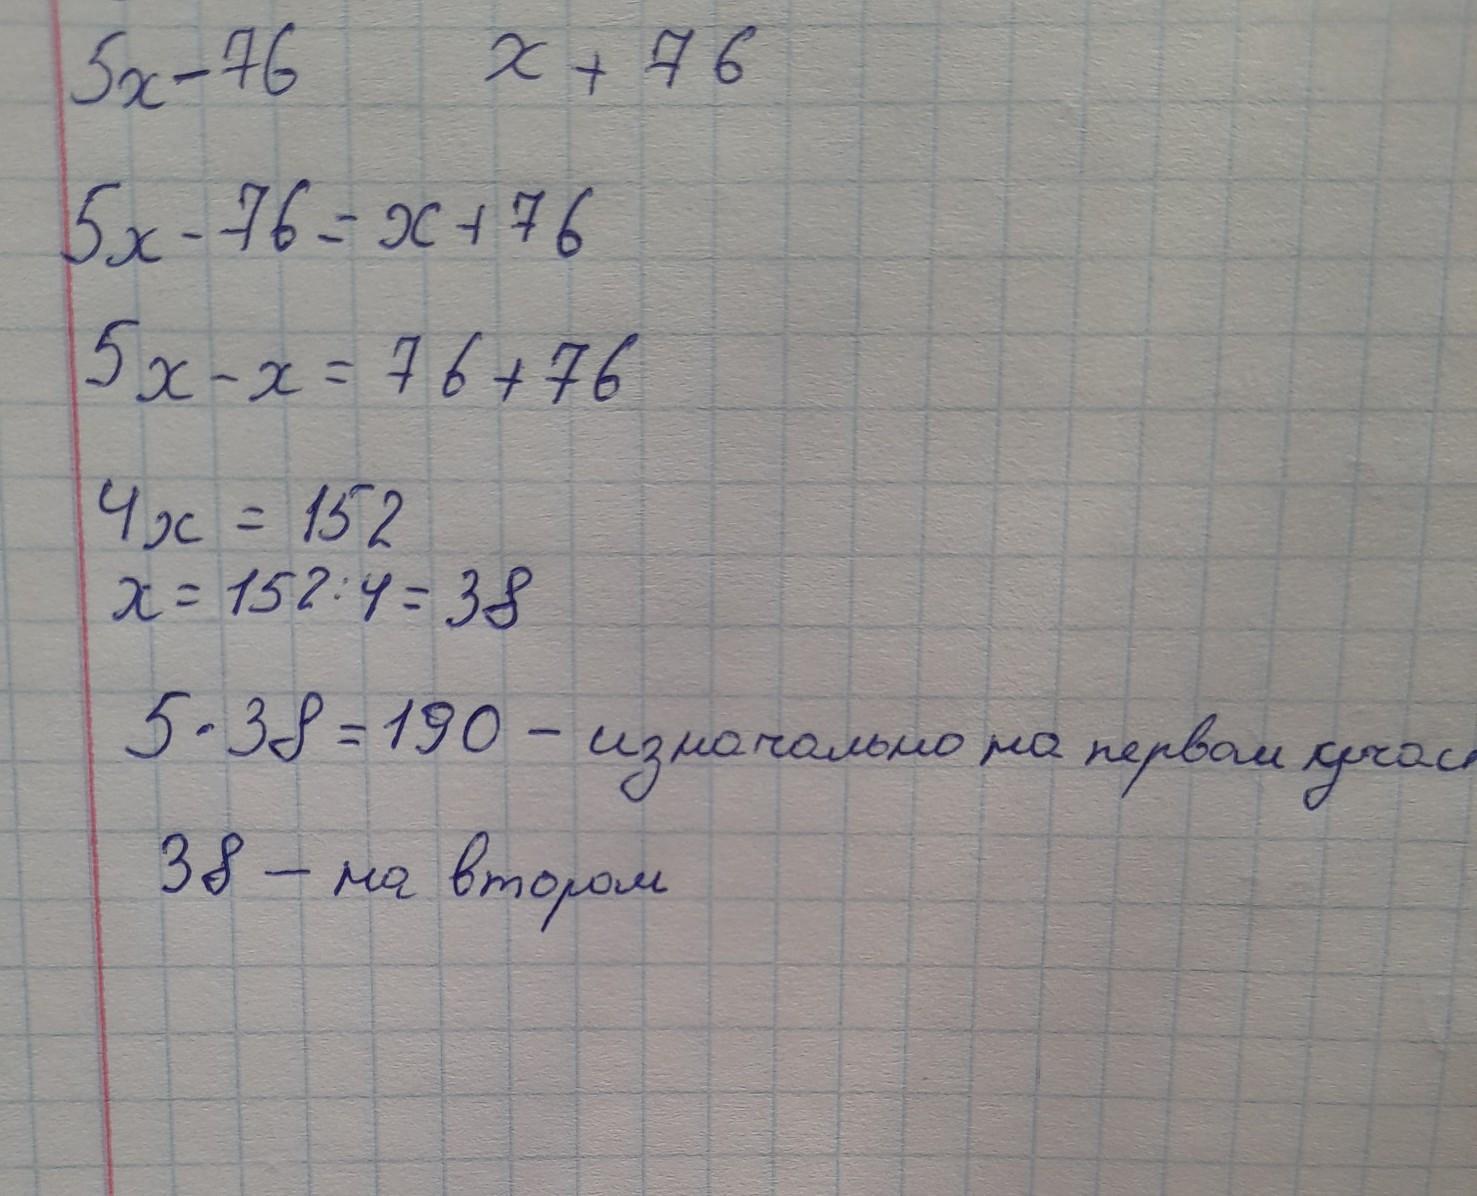 5x-76 x+76
5x-76=x+76
5x-x=76+76
4x=152
x=152:4=38
5·38=190 - изначально на первом
38 - на втором